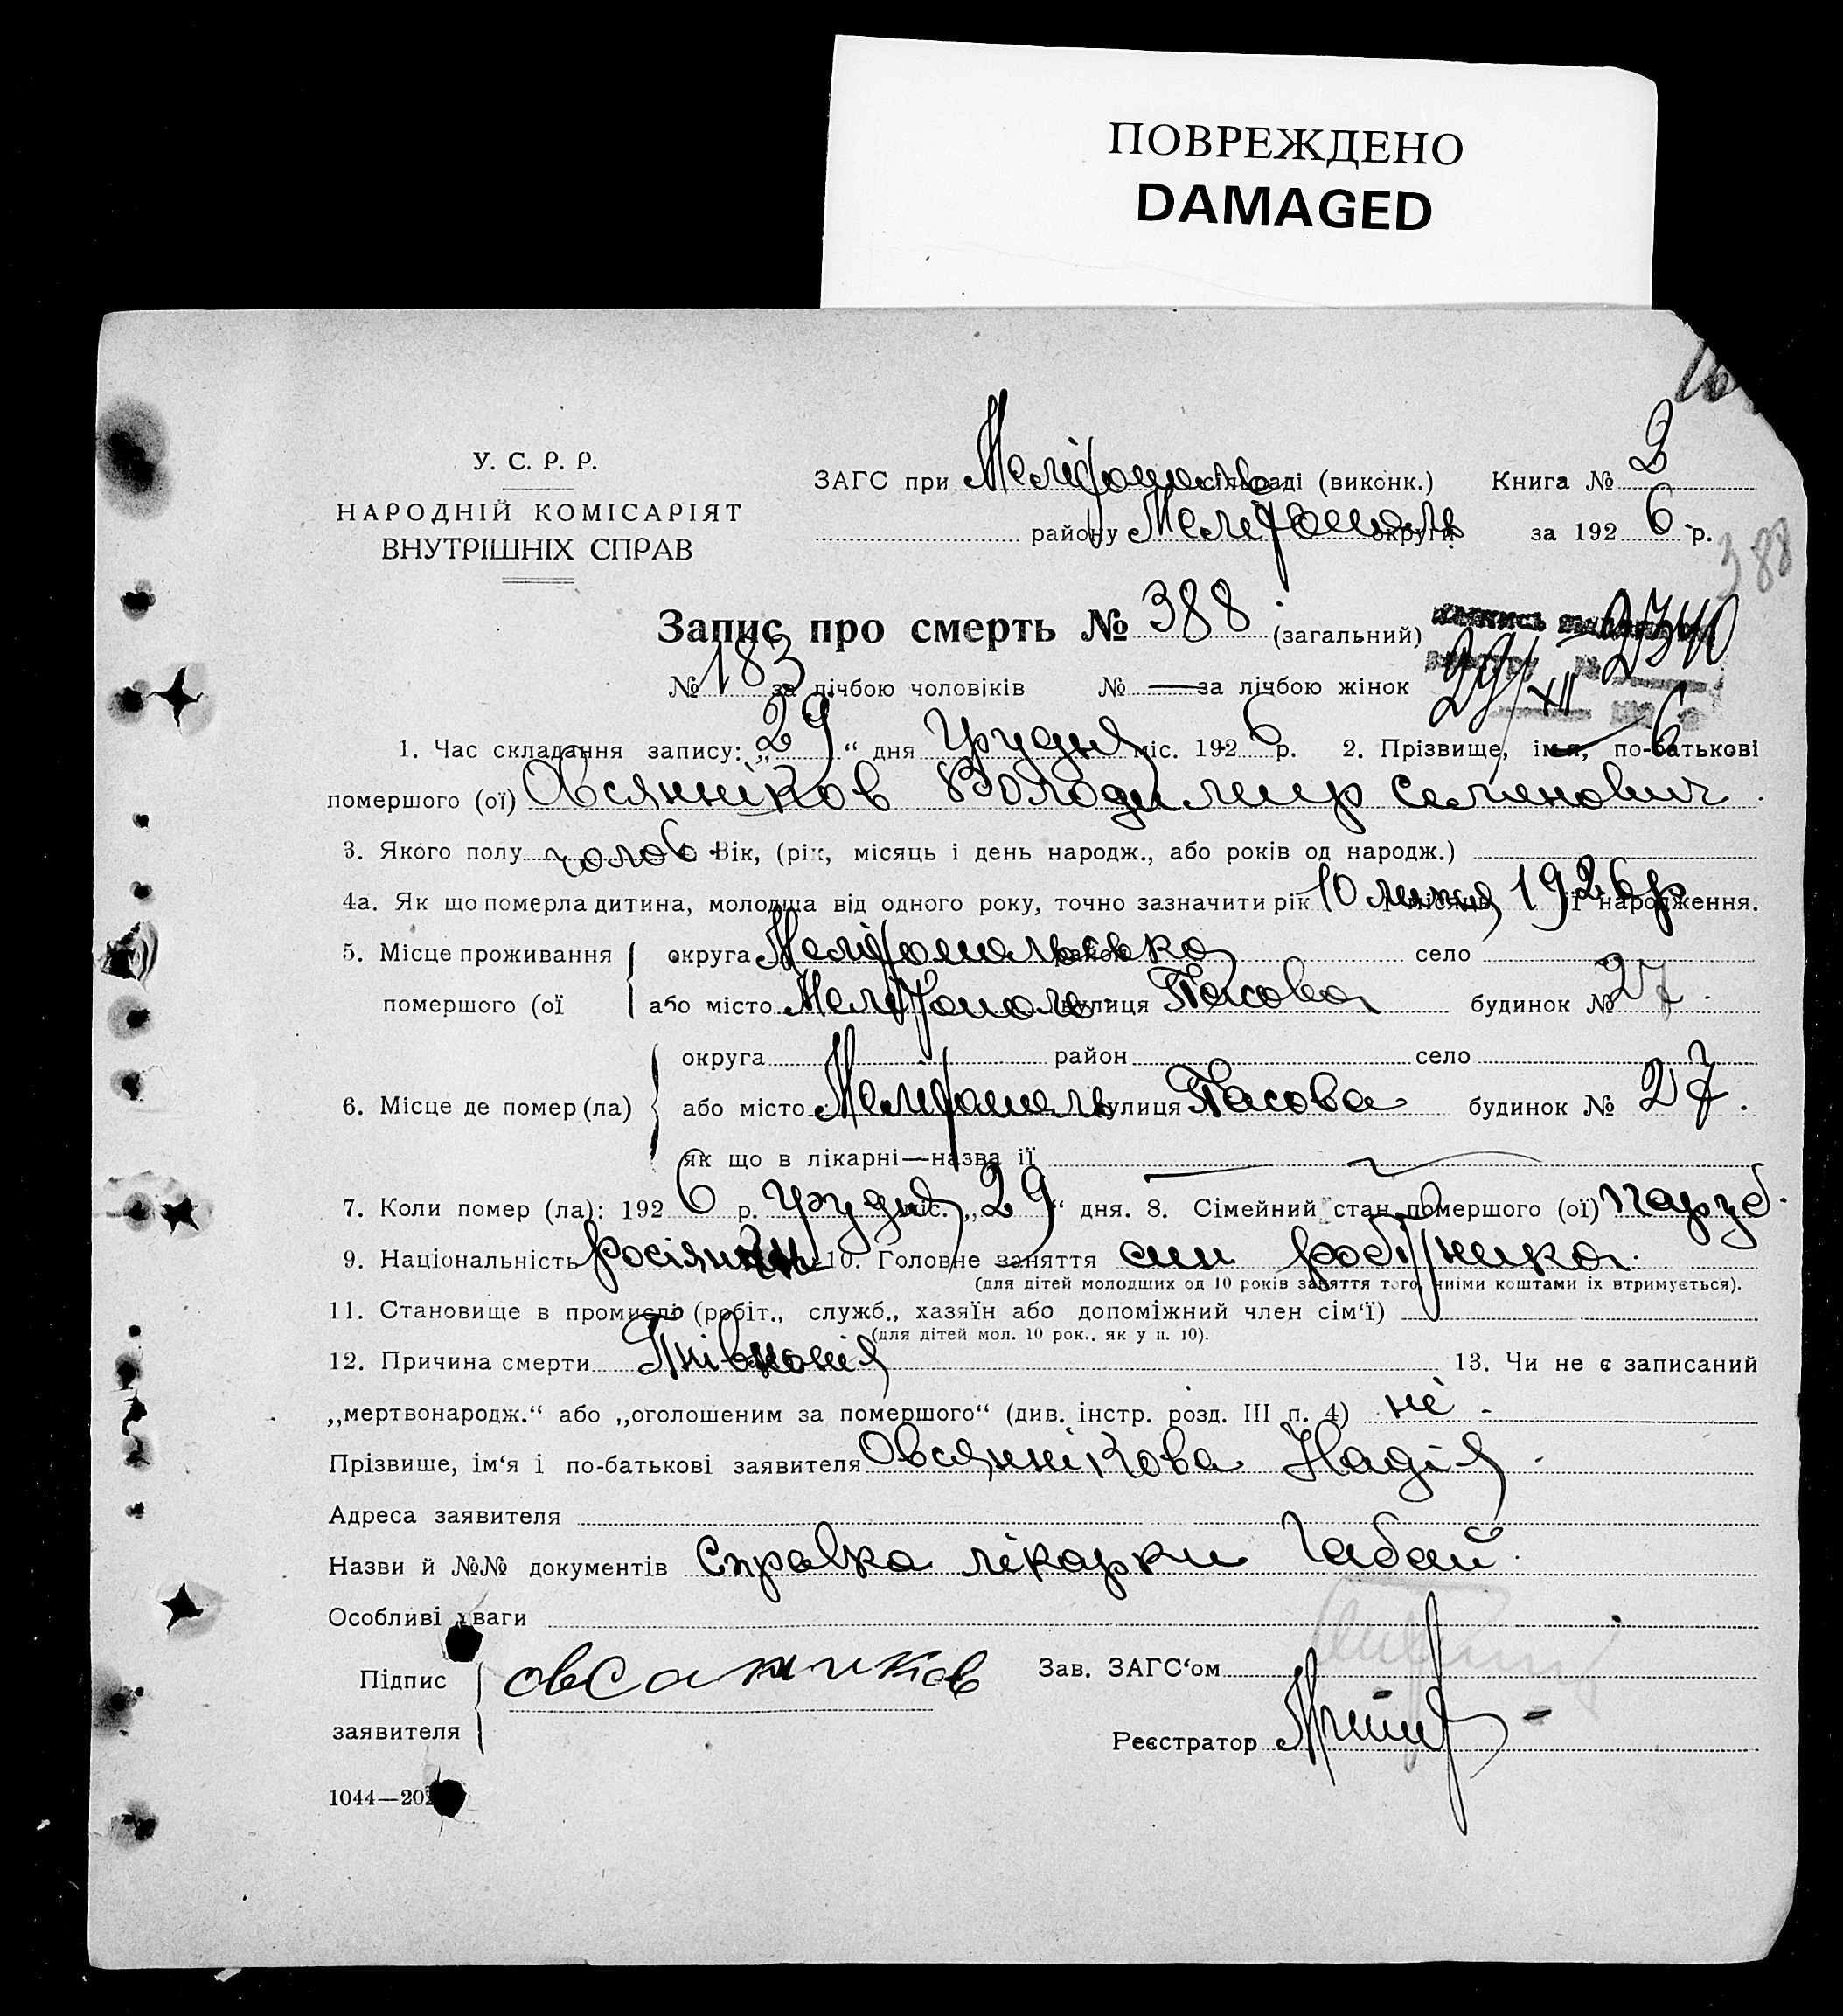 ПОВРЕЖДЕНО
DAMAGED
У. С. Р. Р.
НАРОДНІЙ КОМІСАРІЯТ
ВНУТРІШНІХ СПРАВ
ЗАГС при Меліфополь сільраді (виконк.) Книга № 3
району Меліфополь округи за 1926 р.
388
Запис про смерть № 388 (загальний)
2340
№ 183 за лічбою чоловіків № — за лічбою жінок
29/XII 6
1. Час складання запису: „29“ дня грудня міс. 1926 р. 2. Прізвище, ім'я, по-батькові
помершого (ої) Овсянніков Володимир Семенович
3. Якого полу чолов Вік, (рік, місяць і день народж., або років од народж.)
4а. Як що померла дитина, молодша від одного року, точно зазначити рік і місяць її народження. 10 липня 1926 р
5. Місце проживання округа Меліфопольська район село
помершого (ої або місто Меліфополь вулиця Пасова будинок № 27.
округа район село
6. Місце де помер (ла) або місто Меліфополь вулиця Пасова будинок № 27.
як що в лікарні—назва її
7. Коли помер (ла): 1926 р. грудня міс. „29“ дня. 8. Сімейний стан помершого (ої) паруб.
9. Національність росіянин 10. Головне заняття син робітника.
(для дітей молодших од 10 років заняття того, чиїми коштами їх втримується).
11. Становище в промислі (робіт., служб., хазяїн або допоміжний член сім'ї)
(для дітей мол. 10 рок., як у п. 10).
12. Причина смерти Пнівмонія 13. Чи не є записаний
„мертвонародж.“ або „оголошеним за помершого“ (див. інстр. розд. III п. 4) ні -
Прізвише, ім'я і по-батькові заявителя Овсяннікова Надія.
Адреса заявителя
Назви й №№ документів Справка лікарки Габай.
Особливі уваги
Підпис заявителя овсаников Зав. ЗАГС'ом
Реєстратор
1044—202